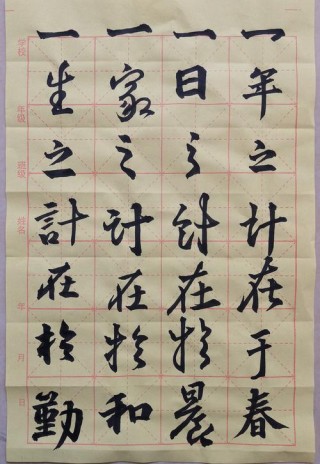 一年之计在于春
一日之计在於晨
一家之计在於和
一生之計在於勤
学校
年级
班级
姓名
年
月
日